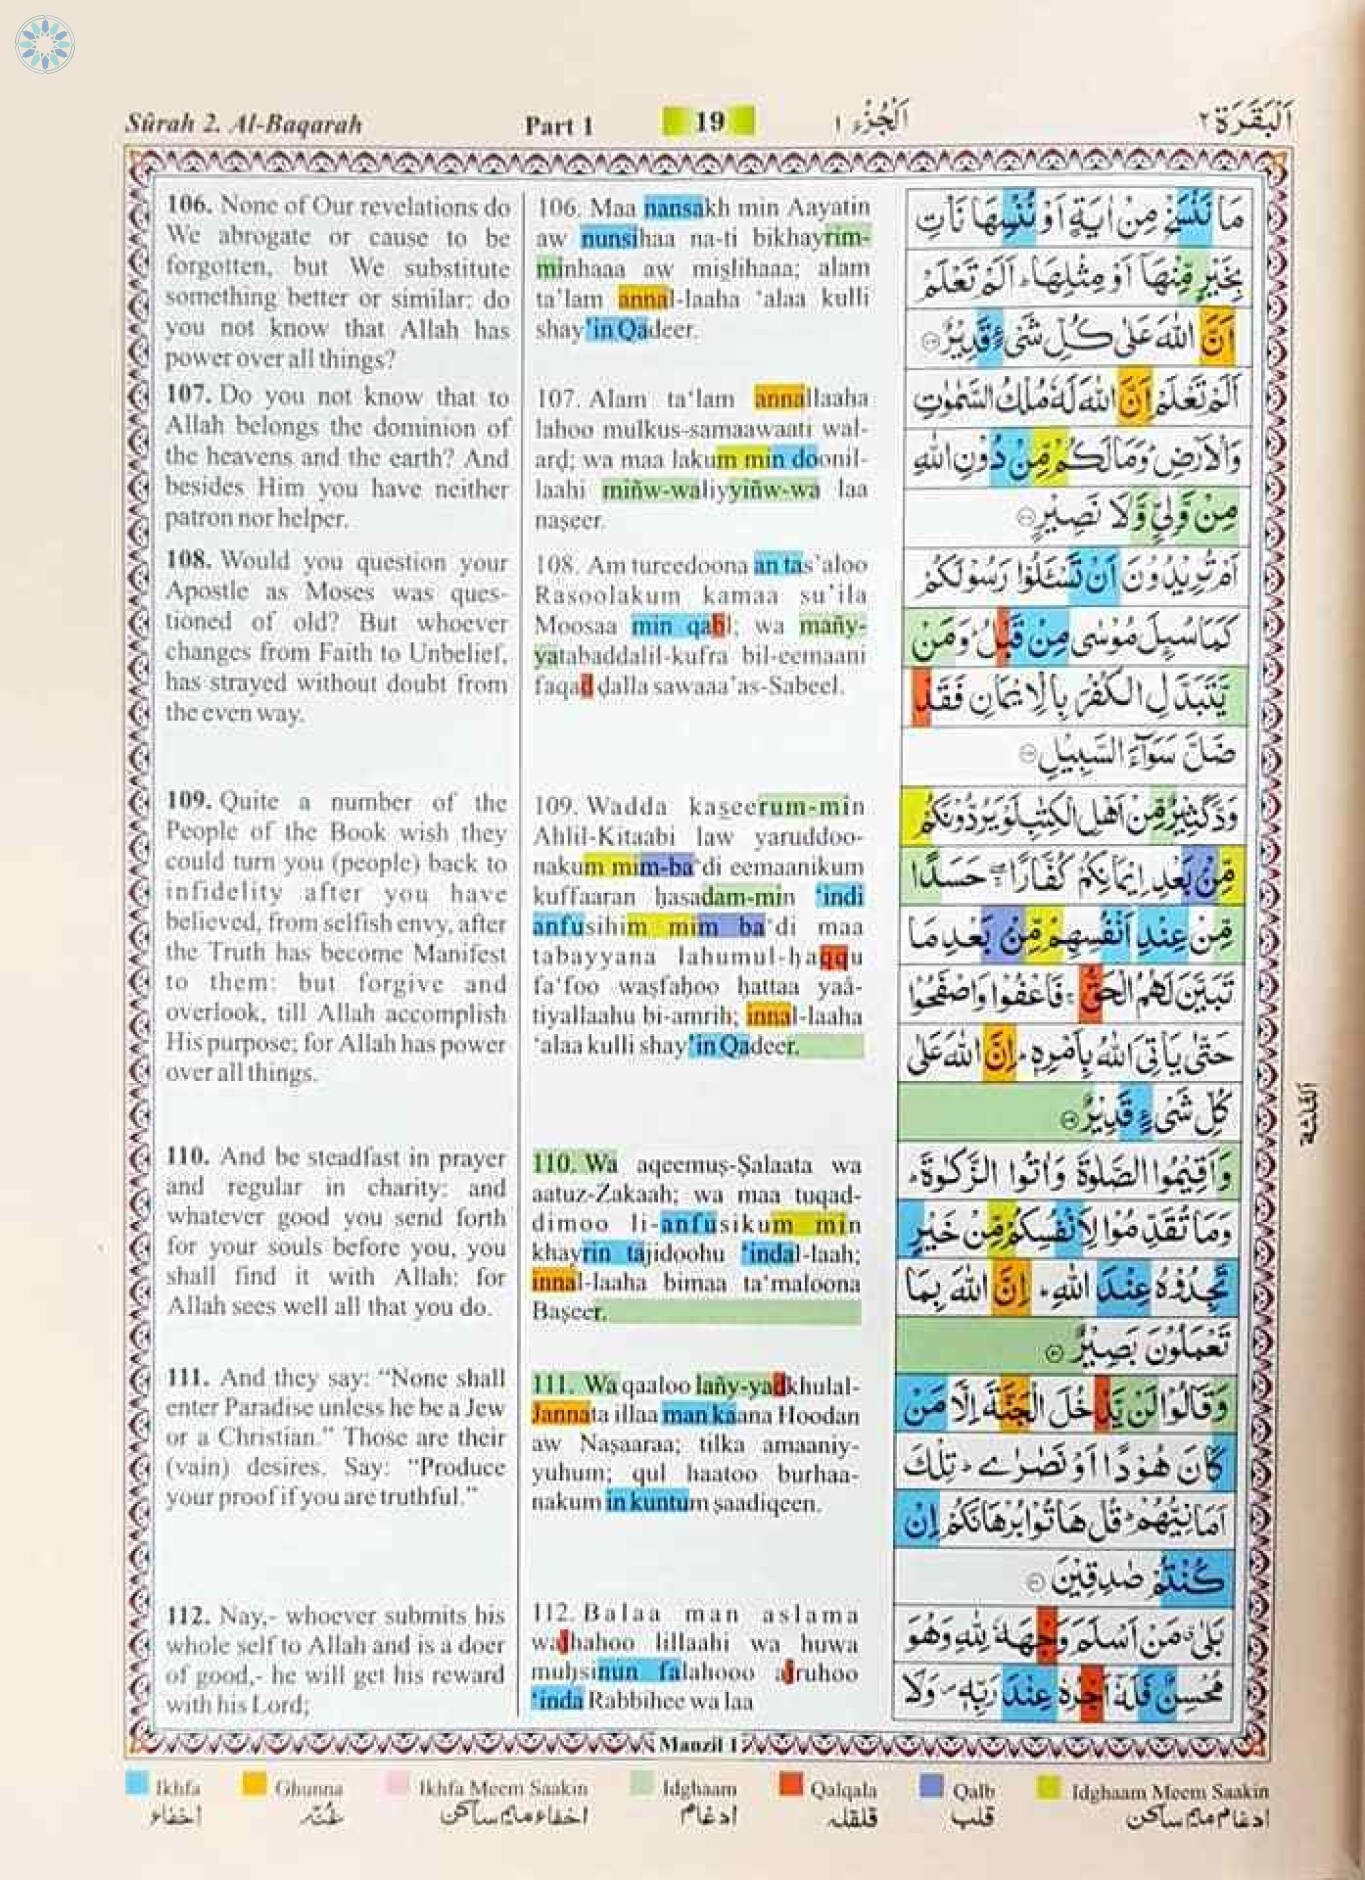 Sûrah 2. Al-Baqarah
Part 1
19
اَلْجُزْء ١
اَلْبَقَرَة ٢
106. None of Our revelations do
We abrogate or cause to be
forgotten, but We substitute
something better or similar: do
you not know that Allah has
power over all things?
107. Do you not know that to
Allah belongs the dominion of
the heavens and the earth? And
besides Him you have neither
patron nor helper.
108. Would you question your
Apostle as Moses was ques-
tioned of old? But whoever
changes from Faith to Unbelief,
has strayed without doubt from
the even way.
109. Quite a number of the
People of the Book wish they
could turn you (people) back to
infidelity after you have
believed, from selfish envy, after
the Truth has become Manifest
to them: but forgive and
overlook, till Allah accomplish
His purpose; for Allah has power
over all things.
110. And be steadfast in prayer
and regular in charity: and
whatever good you send forth
for your souls before you, you
shall find it with Allah: for
Allah sees well all that you do.
111. And they say: “None shall
enter Paradise unless he be a Jew
or a Christian.” Those are their
(vain) desires. Say: “Produce
your proof if you are truthful.”
112. Nay,- whoever submits his
whole self to Allah and is a doer
of good,- he will get his reward
with his Lord;
106. Maa nansakh min Aayatin
aw nunsihaa na-ti bikhayrim-
minhaaa aw mislihaaa; alam
ta‘lam annal-laaha ‘alaa kulli
shay’in Qadeer.
107. Alam ta‘lam annallaaha
lahoo mulkus-samaawaati wal-
ard; wa maa lakum min doonil-
laahi miñw-waliyyiñw-wa laa
naṣeer.
108. Am tureedoona an tas’aloo
Rasoolakum kamaa su’ila
Moosaa min qabl; wa mañy-
yatabaddalil-kufra bil-eemaani
faqad ḍalla sawaaa’as-Sabeel.
109. Wadda kaseerum-min
Ahlil-Kitaabi law yaruddoo-
nakum mim-ba‘di eemaanikum
kuffaaran ḥasadam-min ‘indi
anfusihim mim ba‘di maa
tabayyana lahumul-ḥaqqu
fa‘foo waṣfaḥoo ḥattaa yaâ-
tiyallaahu bi-amrih; innal-laaha
‘alaa kulli shay’in Qadeer.
110. Wa aqeemuṣ-Ṣalaata wa
aatuz-Zakaah; wa maa tuqad-
dimoo li-anfusikum min
khayrin tajidoohu ‘indal-laah;
innal-laaha bimaa ta‘maloona
Baṣeer.
111. Wa qaaloo lañy-yadkhulal-
Jannata illaa man kaana Hoodan
aw Naṣaaraa; tilka amaaniy-
yuhum; qul haatoo burhaa-
nakum in kuntum ṣaadiqeen.
112. Balaa man aslama
wajhahoo lillaahi wa huwa
muḥsinun falahooo ajruhoo
‘inda Rabbihee wa laa
مَا نَنْسَخْ مِنْ اٰيَةٍ اَوْ نُنْسِهَا نَاْتِ
بِخَيْرٍ مِّنْهَاۤ اَوْ مِثْلِهَا ؕ اَلَمْ تَعْلَمْ
اَنَّ اللّٰهَ عَلٰى كُلِّ شَیْءٍ قَدِيْرٌ ۝١٠٦
اَلَمْ تَعْلَمْ اَنَّ اللّٰهَ لَهٗ مُلْكُ السَّمٰوٰتِ
وَالْاَرْضِ ؕ وَمَا لَكُمْ مِّنْ دُوْنِ اللّٰهِ
مِنْ وَّلِيٍّ وَّلَا نَصِيْرٍ ۝١٠٧
اَمْ تُرِيْدُوْنَ اَنْ تَسْـَٔلُوْا رَسُوْلَكُمْ
كَمَا سُىِٕلَ مُوْسٰى مِنْ قَبْلُ ؕ وَمَنْ
يَّتَبَدَّلِ الْكُفْرَ بِالْاِيْمَانِ فَقَدْ
ضَلَّ سَوَآءَ السَّبِيْلِ ۝١٠٨
وَدَّ كَثِيْرٌ مِّنْ اَهْلِ الْكِتٰبِ لَوْ يَرُدُّوْنَكُمْ
مِّنْۢ بَعْدِ اِيْمَانِكُمْ كُفَّارًا ۖۚ حَسَدًا
مِّنْ عِنْدِ اَنْفُسِهِمْ مِّنْۢ بَعْدِ مَا
تَبَيَّنَ لَهُمُ الْحَقُّ ۚ فَاعْفُوْا وَاصْفَحُوْا
حَتّٰى يَاْتِیَ اللّٰهُ بِاَمْرِهٖ ؕ اِنَّ اللّٰهَ عَلٰى
كُلِّ شَیْءٍ قَدِيْرٌ ۝١٠٩
وَاَقِيْمُوا الصَّلٰوةَ وَاٰتُوا الزَّكٰوةَ ؕ
وَمَا تُقَدِّمُوْا لِاَنْفُسِكُمْ مِّنْ خَيْرٍ
تَجِدُوْهُ عِنْدَ اللّٰهِ ؕ اِنَّ اللّٰهَ بِمَا
تَعْمَلُوْنَ بَصِيْرٌ ۝١١٠
وَقَالُوْا لَنْ يَّدْخُلَ الْجَنَّةَ اِلَّا مَنْ
كَانَ هُوْدًا اَوْ نَصٰرٰى ؕ تِلْكَ
اَمَانِيُّهُمْ ؕ قُلْ هَاتُوْا بُرْهَانَكُمْ اِنْ
كُنْتُمْ صٰدِقِيْنَ ۝١١١
بَلٰى ۗ مَنْ اَسْلَمَ وَجْهَهٗ لِلّٰهِ وَهُوَ
مُحْسِنٌ فَلَهٗۤ اَجْرُهٗ عِنْدَ رَبِّهٖ ۪ وَلَا
Manzil 1
Ikhfa
Ghunna
Ikhfa Meem Saakin
Idghaam
Qalqala
Qalb
Idghaam Meem Saakin
اخفاء
غُنّہ
اخفاء میم ساکن
ادغام
قلقلہ
قلب
ادغام میم ساکن